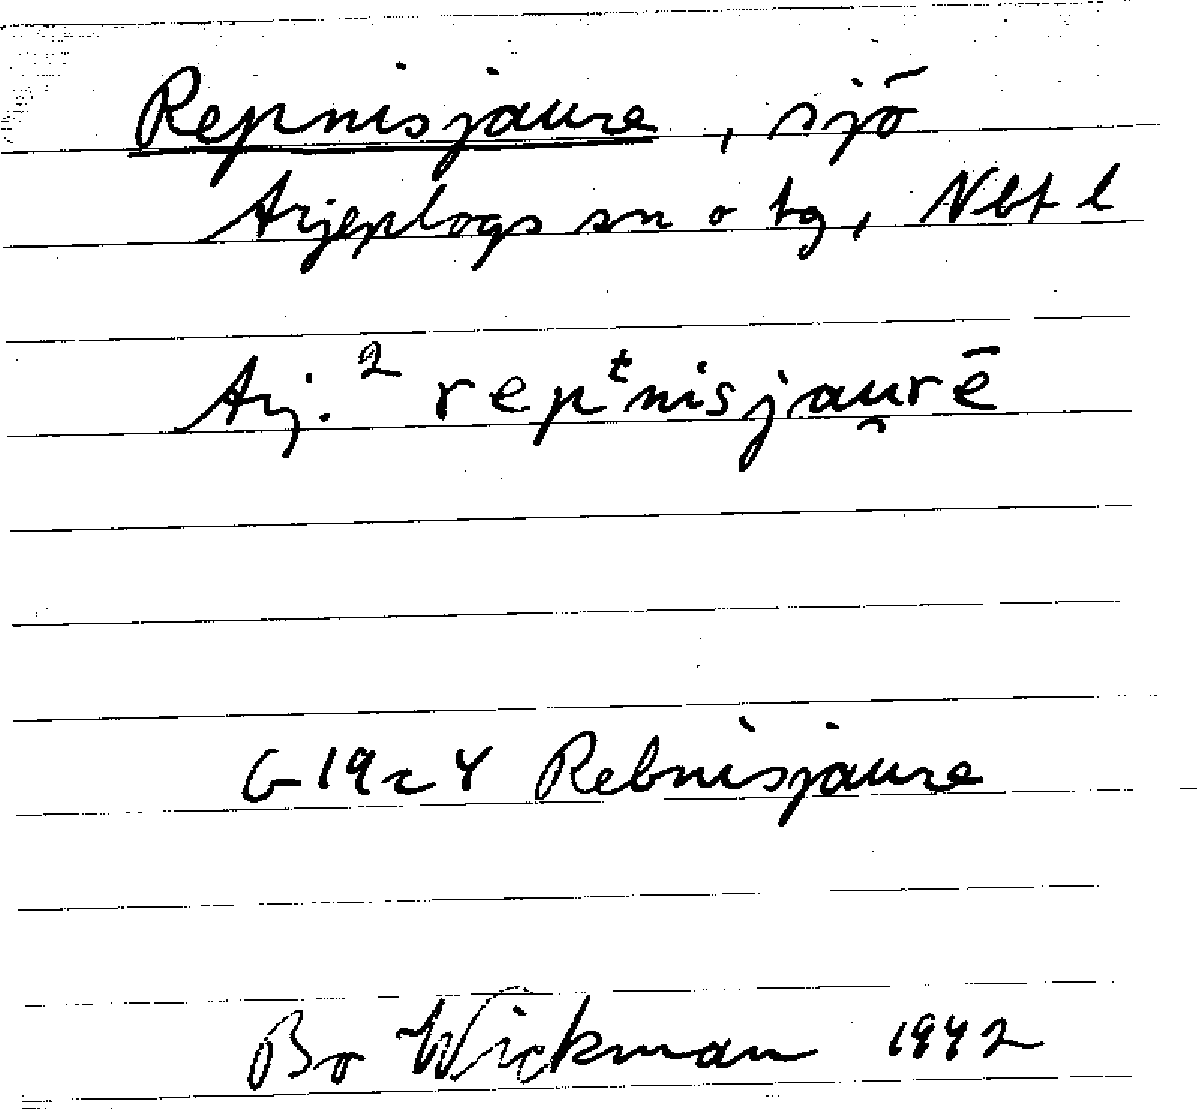 Repnisjaure, sjö
Arjeplogs sn o tg, Nbt l
Arj.² repᵗnisjau̯rē
G 19 z 4 Rebnisjaure
Bo Wickman 1942